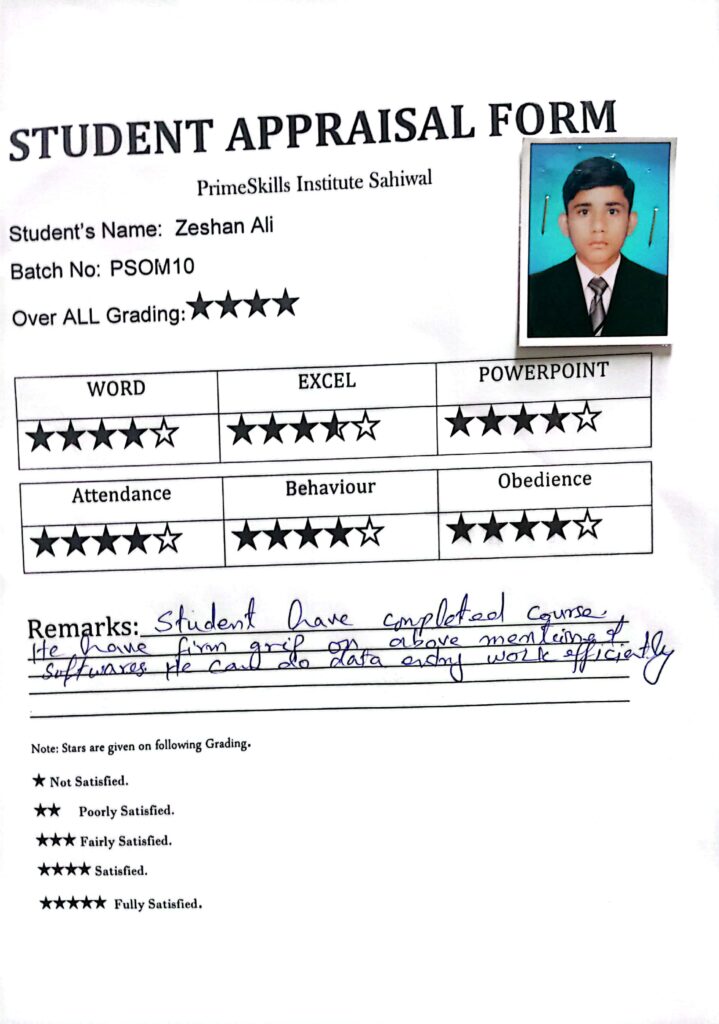 STUDENT APPRAISAL FORM
PrimeSkills Institute Sahiwal
Student's Name: Zeshan Ali
Batch No: PSOM10
Over ALL Grading:★★★★
WORD EXCEL POWERPOINT
Attendance Behaviour Obedience
Remarks: Student have completed course.
He have firm grip on above mentioned
softwares He can do data entry work efficiently
Note: Stars are given on following Grading.
★ Not Satisfied.
★★ Poorly Satisfied.
★★★ Fairly Satisfied.
★★★★ Satisfied.
★★★★★ Fully Satisfied.